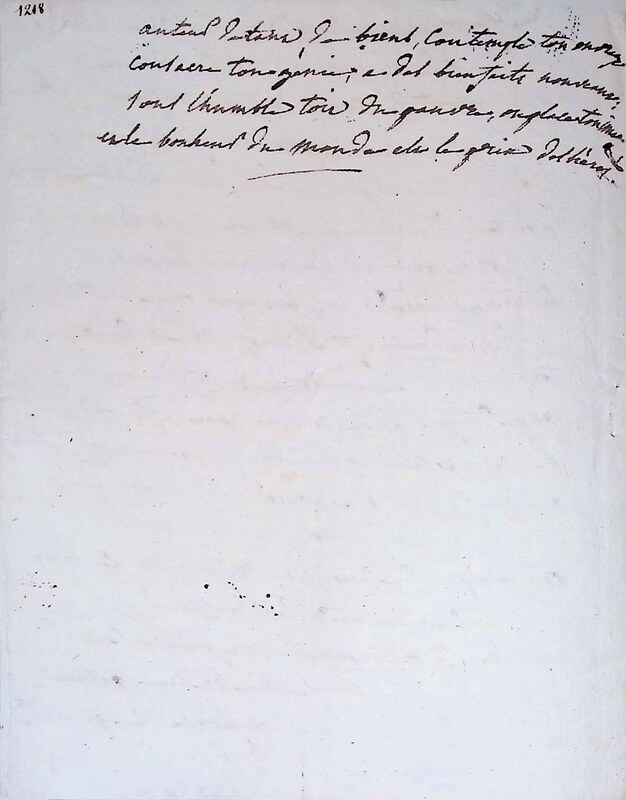 1218
auteur de tans de biens, Contemple ton ouvrage
Consacre ton génie, a des bienfaits nouveaux,
sous l'humble toit du pauvre, on place ton image
et le bonheur du monde est le prix des héros.